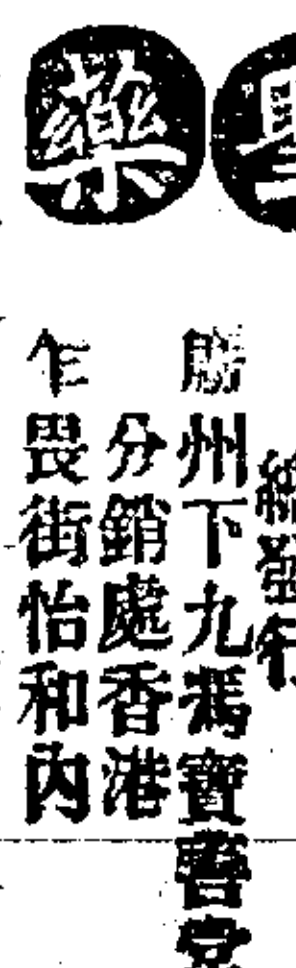 聖藥
總發行
州下九馮寶善堂
分銷處香港
乍畏街怡和內